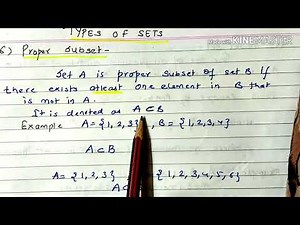 TYPES OF SETS
KINEMASTER
6) Proper subset -
Set A is proper subset of set B if
there exists atleast one element in B that
is not in A.
It is denoted as A ⊂ B
Example A = {1, 2, 3} , B = {1, 2, 3, 4}
A ⊂ B
A = {1, 2, 3} , = {1, 2, 3, 4, 5, 6}
A ⊂